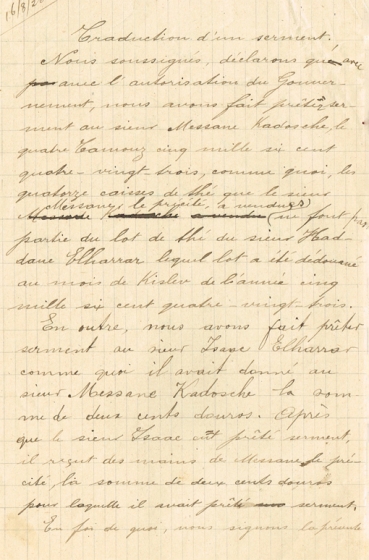 16/8/2
Traduction d'un serment.
Nous soussignés, déclarons qu' avec
avec l'autorisation du Gouver-
nement, nous avons fait prêter, ser-
ment au sieur Messane Kadosche, le
quatre Tamouz cinq mille six cent
quatre-vingt-trois, comme quoi, les
quatorze caisses de thé que le sieur
Messane, le précité, a vendues)
Messane Kadosche a vendu (ne font pas
partie du lot de thé du sieur Had-
dane Elharrar lequel lot a été dédouané
au mois de Kislev de l'année cinq
mille six cent quatre-vingt-trois.
En outre, nous avons fait prêter
serment au sieur Isaac Elharrar
comme quoi il avait donné au
sieur Messane Kadosche la som-
me de deux cents douros. Après
que le sieur Isaac eût prêté serment,
il reçut des mains de Messane, le pré-
cité, la somme de deux cents douros
pour laquelle il avait prêté serment.
En foi de quoi, nous signons la présente